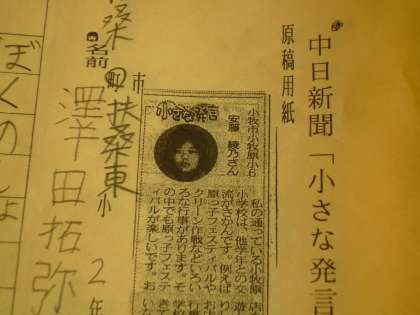 中日新聞「小さな発言
原稿用紙
小さな発言
小牧市小牧原小6
安藤 綾乃さん
私の通っている小牧原
小学校は、他学年との交
流がさかんです。例えば
原っ子フェスティバルや
クリーン作戦などいろい
ろな行事があります。そ
の中でも原っ子フェステ
ィバルが楽しいです。お
市
町
扶桑東小
2年
名前
澤田拓弥
ぼくのしょ